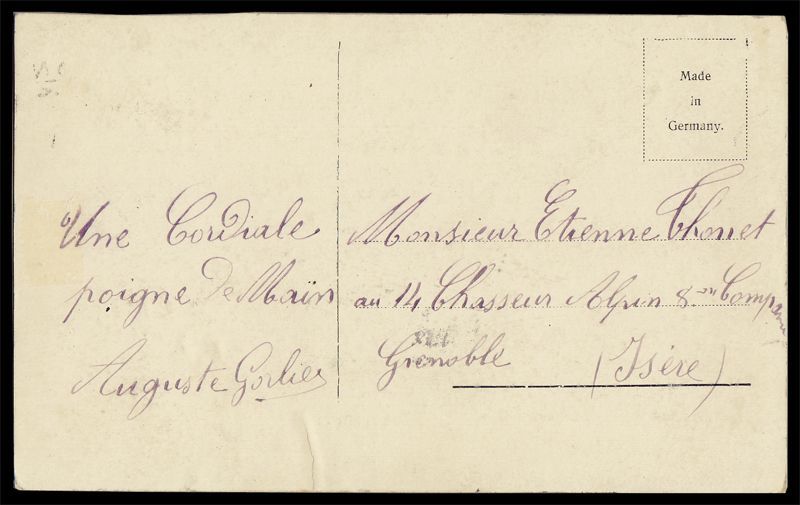 Made
in
Germany.
Une Cordiale
poigne De Main
Auguste Gorlier
Monsieur Etienne Thonet
au 14 Chasseur Alpin 8 on Compagnie
Grenoble (Isère)